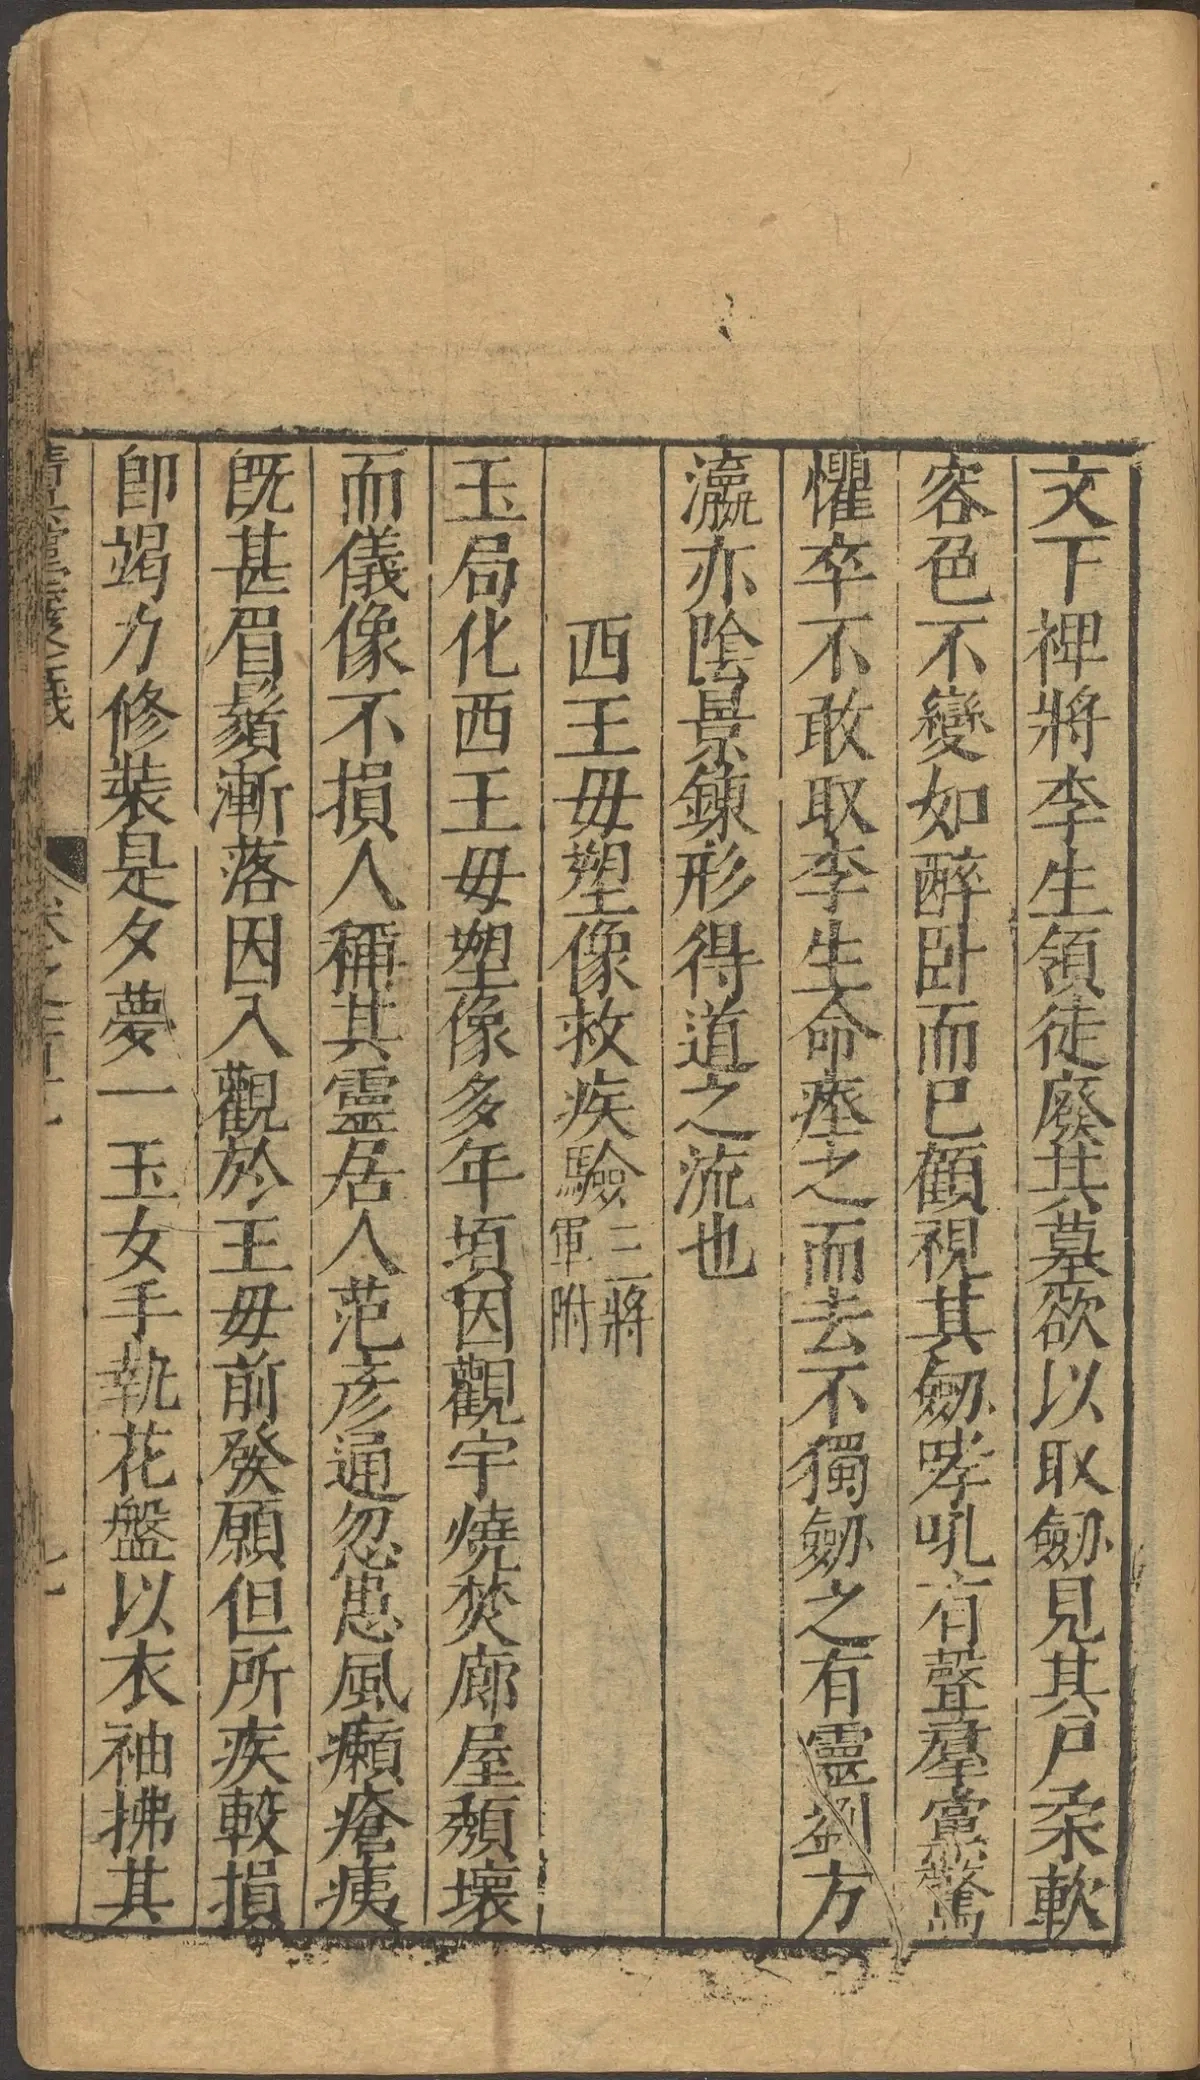 文下禆將李生領徒廢其墓欲以取劒見其尸柔軟
容色不變如醉卧而已顧視其劒哮吼有聲羣黨驚
懼卒不敢取李生命瘞之而去不獨劒之有靈劉方
瀛亦陰景鍊形得道之流也
西王毋塑像救疾驗三將軍附
玉局化西王毋塑像多年頃因觀宇燒焚廊屋頹壞
而儀像不損人稱其靈居人范彥通忽患風癩瘡痍
旣甚眉鬚漸落因入觀於王毋前發願但所疾較損
卽竭力修裝是夕夢一玉女手執花盤以衣袖拂其